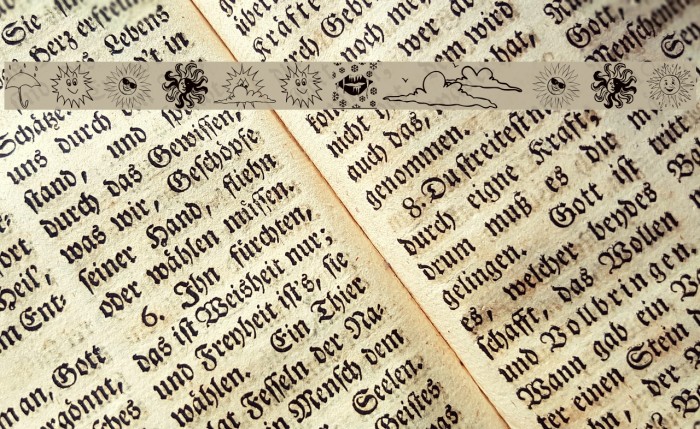 Sie
Herz erfreu
Lebens
in
Schätze
uns durch
stand, und
durch das Gewissen,
was wir, Geschöpfe
seiner Hand, fliehn
oder wählen müssen.
6. Ihn fürchten,
das ist Weisheit nur;
und Freyheit ist's, sie
wählen. Ein Thier
hat Fesseln der Na-
in Mensch dem
Seelen.
Geistes
ort
Heil,
m Ent-
man, Gott
rgönnt,
ches
über
Kräfte
ch Geb
noch me
wer
wird
hat,
Gott,
Menschen
nicht
auch das,
genommen.
8. Du streitest n
durch eigne Kraft:
drum muß es dir
gelingen. Gott ist
es, welcher beydes
schafft, das Wollen
und Vollbringen.
Wann gab ein V
ter einen Stein
hn, der